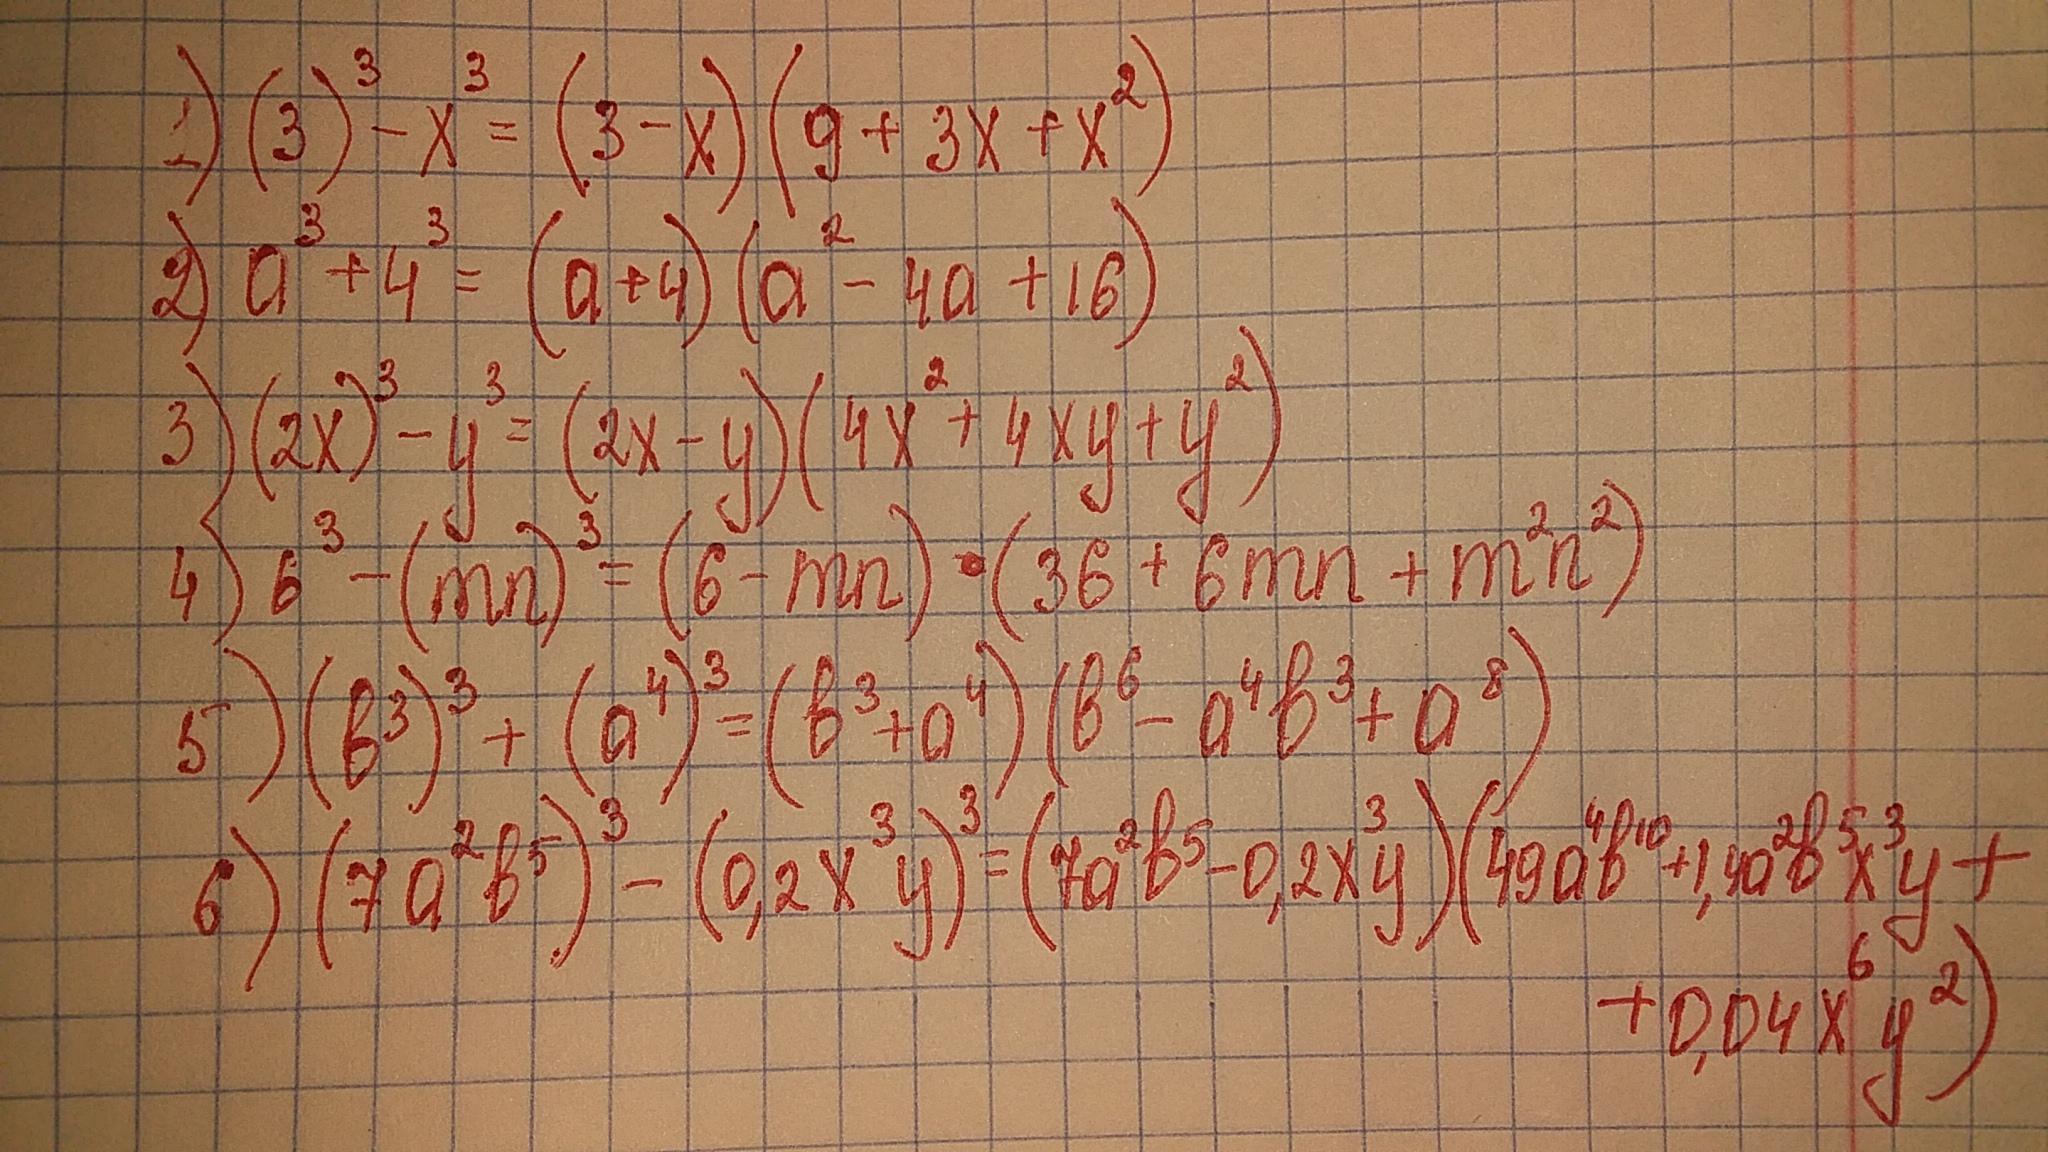 1) (3)³ - x³ = (3-x)(9 + 3x + x²)
2) a³ + 4³ = (a+4)(a² - 4a + 16)
3) (2x)³ - y³ = (2x-y)(4x² + 4xy + y²)
4) 6³ - (mn)³ = (6-mn)·(36 + 6mn + m²n²)
5) (b³)³ + (a⁴)³ = (b³+a⁴)(b⁶ - a⁴b³ + a⁸)
6) (7a²b⁵)³ - (0,2x³y)³ = (7a²b⁵ - 0,2x³y)(49a⁴b¹⁰ + 1,4a²b⁵x³y +
+ 0,04x⁶y²)